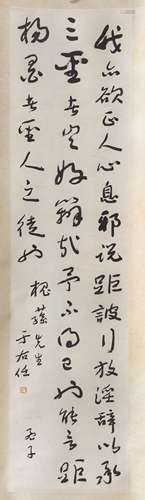 我亦欲正人心息邪說距詖行放淫辭以承
三聖者豈好辯哉予不得已也能言距
楊墨者聖人之徒也
先生
于右任
孟子